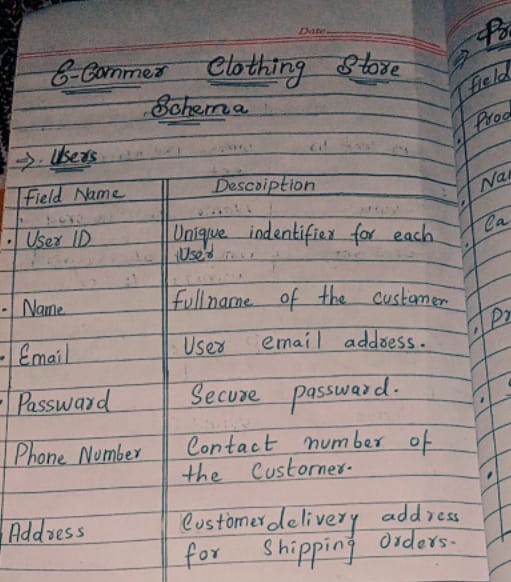 Date
E-Commer Clothing Store
Schema
→ Users
Field Name Description
User ID Unique indentifier for each
User
Name full name of the custamer
Email User email address.
Passward Secure passward.
Phone Number Contact number of
the Customer.
Address Customer delivery address
for Shipping Orders.
Field
Prod
Na
Ca
Pr